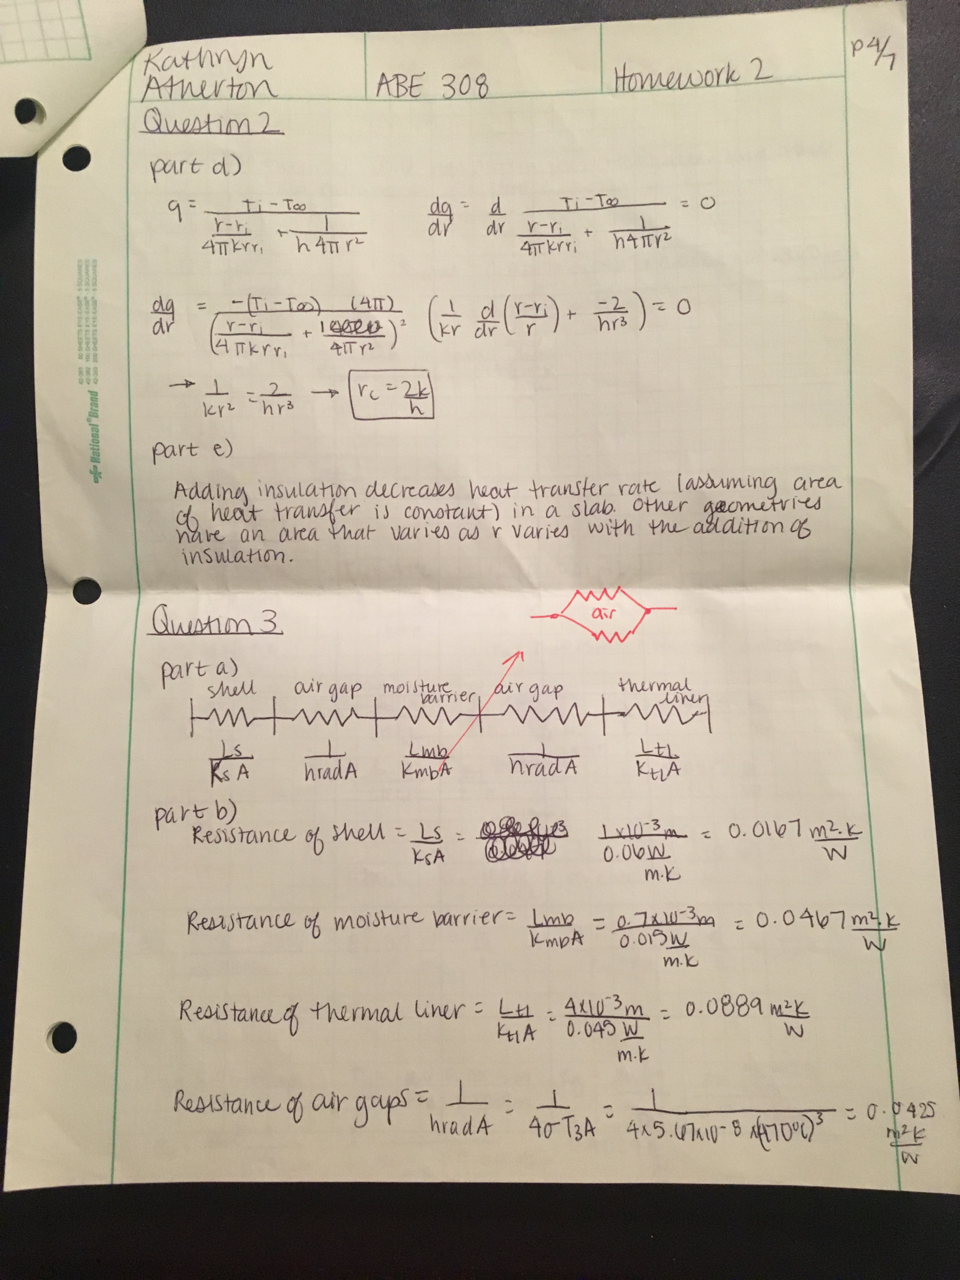 Kathryn
Atherton
ABE 308
Homework 2
p 4/7
Question 2
part d)
q = Ti - T∞ / (r-ri / 4πkrri + 1 / h4πr²)   dq/dr = d/dr Ti - T∞ / (r-ri / 4πkrri + 1 / h4πr²) = 0
dq/dr = -(Ti - T∞) (4π) / (r-ri / 4πkrri + 1 / 4πr²)² (1/kr d/dr (r-ri / r) + -2/hr³) = 0
→ 1/kr² = 2/hr³ → rc = 2k/h
part e)
Adding insulation decreases heat transfer rate (assuming area
of heat transfer is constant) in a slab. Other geometries
have an area that varies as r varies with the addition of
insulation.
Question 3
air
part a)
shell air gap moisture barrier air gap thermal liner
Ls/KsA 1/hradA Lmb/KmbA 1/hradA Ltl/KtlA
part b)
Resistance of shell = Ls/KsA = 1x10⁻³m / 0.06 W/m.K = 0.0167 m².K/W
Resistance of moisture barrier = Lmb/KmbA = 0.7x10⁻³m / 0.015 W/m.K = 0.0467 m².K/W
Resistance of thermal liner = Ltl/KtlA = 4x10⁻³m / 0.045 W/m.K = 0.0889 m²K/W
Resistance of air gaps = 1/hradA = 1/4σT³A = 1 / 4x5.67x10-8 x(470°C)³ = 0.0425 m²K/W
National® Brand